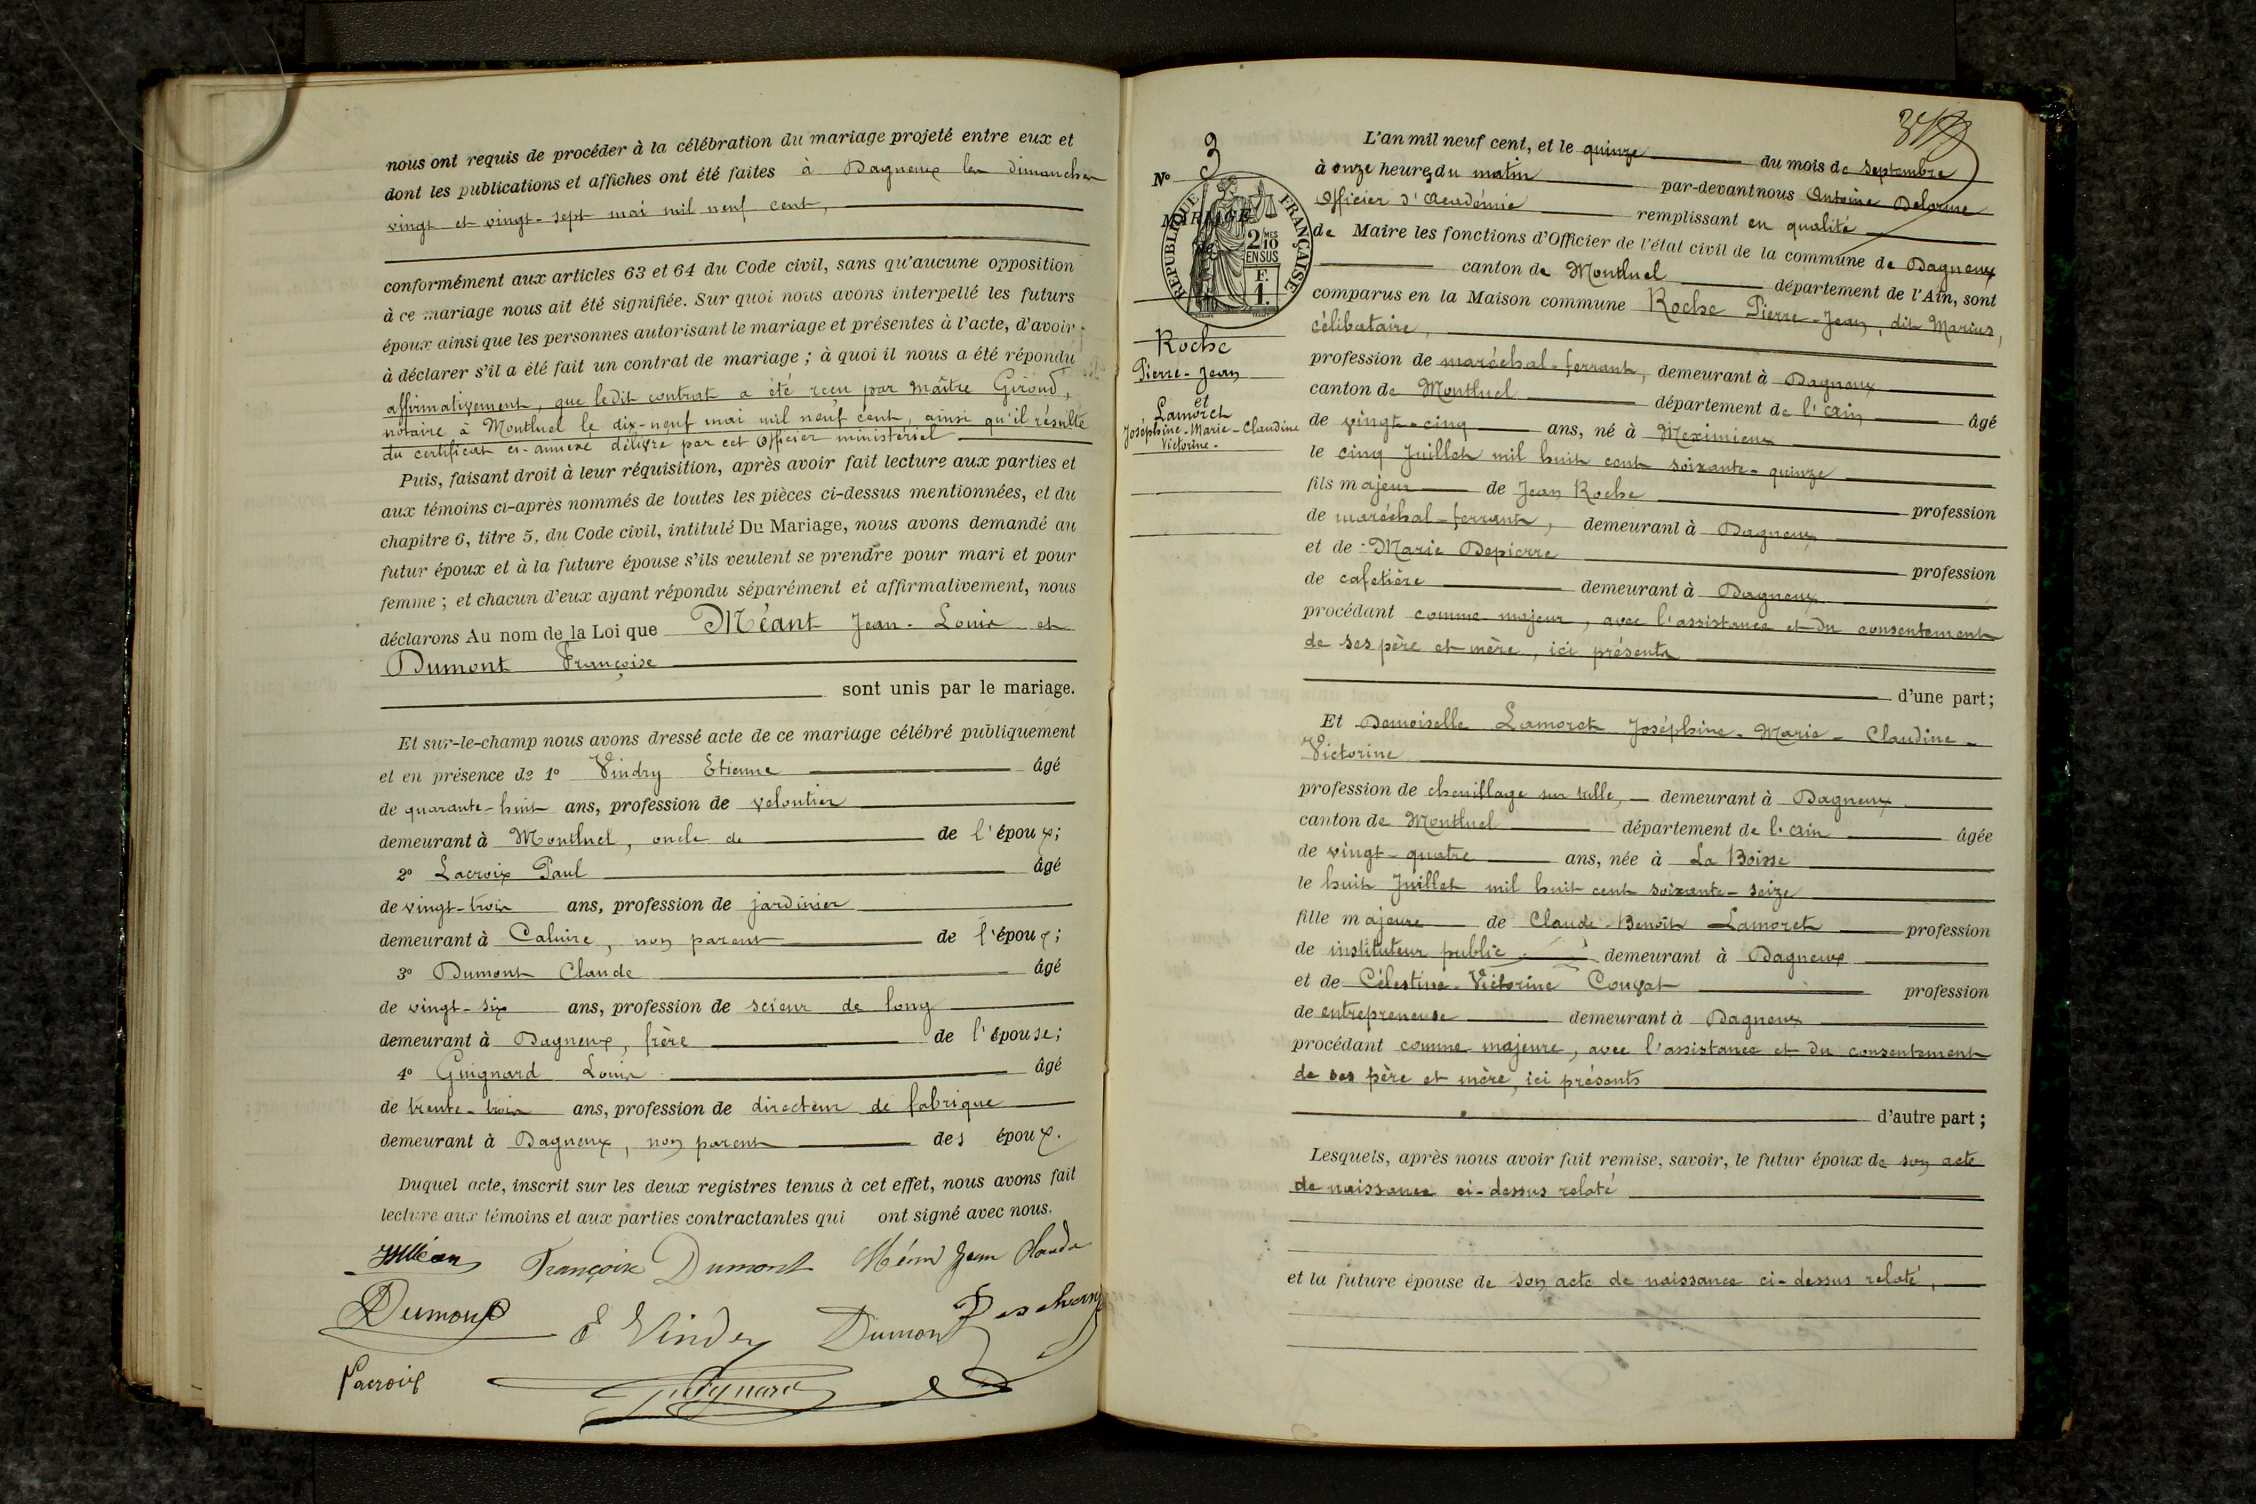 nous ont requis de procéder à la célébration du mariage projeté entre eux et
dont les publications et affiches ont été faites à Dagneux les dimanches
vingt et vingt-sept mai mil neuf cent,
conformément aux articles 63 et 64 du Code civil, sans qu'aucune opposition
à ce mariage nous ait été signifiée. Sur quoi nous avons interpellé les futurs
époux ainsi que les personnes autorisant le mariage et présentes à l'acte, d'avoir
à déclarer s'il a été fait un contrat de mariage ; à quoi il nous a été répondu
affirmativement, que ledit contrat a été reçu par Maître Giroud,
notaire à Montluel le dix-neuf mai mil neuf cent, ainsi qu'il résulte
du certificat ci-annexé délivré par cet officier ministériel
Puis, faisant droit à leur réquisition, après avoir fait lecture aux parties et
aux témoins ci-après nommés de toutes les pièces ci-dessus mentionnées, et du
chapitre 6, titre 5, du Code civil, intitulé Du Mariage, nous avons demandé au
futur époux et à la future épouse s'ils veulent se prendre pour mari et pour
femme ; et chacun d'eux ayant répondu séparément et affirmativement, nous
déclarons Au nom de la Loi que Méant Jean-Louis et
Dumont Françoise
sont unis par le mariage.
Et sur-le-champ nous avons dressé acte de ce mariage célébré publiquement
et en présence de 1º Vindry Etienne âgé
de quarante-huit ans, profession de veloutier
demeurant à Montluel, oncle de de l'époux;
2º Lacroix Paul âgé
de vingt-trois ans, profession de jardinier
demeurant à Caluire, non parent de l'époux;
3º Dumont Claude âgé
de vingt-six ans, profession de scieur de long
demeurant à Dagneux, frère de l'épouse;
4º Guignard Louis âgé
de trente-trois ans, profession de directeur de fabrique
demeurant à Dagneux, non parent des époux.
Duquel acte, inscrit sur les deux registres tenus à cet effet, nous avons fait
lecture aux témoins et aux parties contractantes qui ont signé avec nous.
Françoise Dumont Jean Claude
Dumont E Vindry Dumont
Lacroix
Nº 3
MARIAGE
de
RÉPUBLIQUE FRANÇAISE
2/10 MES
EN SUS
F.
1.
Roche
Pierre-Jean
et
Lamoret
Joséphine-Marie-Claudine
Victorine-
L'an mil neuf cent, et le quinze du mois de septembre
à onze heures du matin par-devant nous Antoine Delorme
Officier d'Académie remplissant en qualité
de Maire les fonctions d'Officier de l'état civil de la commune de Dagneux
canton de Montluel département de l'Ain, sont
comparus en la Maison commune Roche Pierre-Jean, dit Marius,
célibataire,
profession de maréchal-ferrant, demeurant à Dagneux
canton de Montluel département de l'Ain âgé
de vingt-cinq ans, né à Meximieux
le cinq Juillet mil huit cent soixante-quinze
fils majeur de Jean Roche profession
de maréchal-ferrant, demeurant à Dagneux
et de Marie Depierre profession
de cafetière demeurant à Dagneux
procédant comme majeur, avec l'assistance et du consentement
de ses père et mère, ici présents
d'une part;
Et Demoiselle Lamoret Joséphine-Marie-Claudine-
Victorine
profession de chenillage sur tulle, demeurant à Dagneux
canton de Montluel département de l'Ain âgée
de vingt-quatre ans, née à La Boisse
le huit Juillet mil huit cent soixante-seize
fille majeure de Claude-Benoît Lamoret profession
de instituteur public demeurant à Dagneux
et de Célestine-Victorine profession
de entrepreneuse demeurant à Dagneux
procédant comme majeure, avec l'assistance et du consentement
de ses père et mère, ici présents
d'autre part ;
Lesquels, après nous avoir fait remise, savoir, le futur époux de son acte
de naissance ci-dessus relaté
et la future épouse de son acte de naissance ci-dessus relaté,